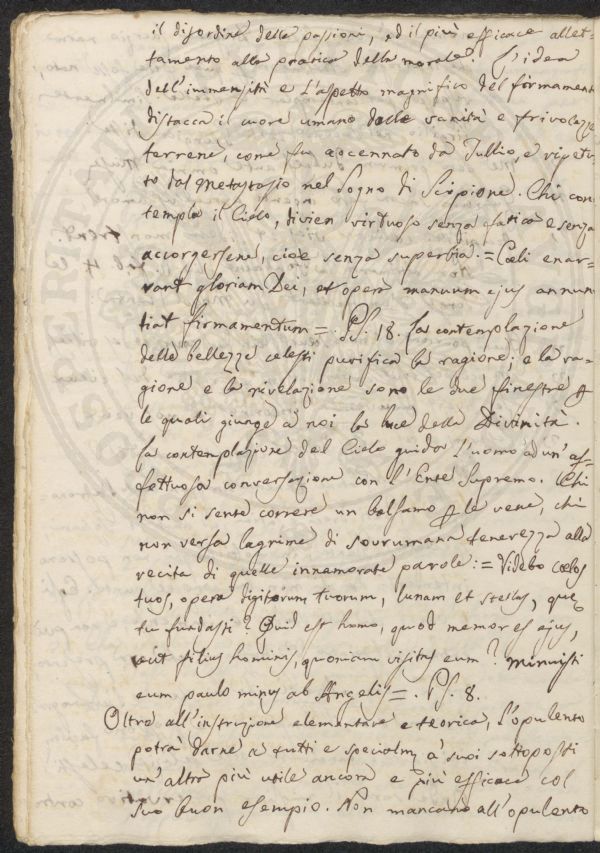 il disordine delle passioni, ed il più efficace allet-
tamento alla pratica della morale. L'idea
dell'immensità e l'aspetto magnifico del firmamento
distacca il cuore umano dalle vanità e frivolezze
terrene, come fu accennato da Tullio, e ripetu-
to dal Metastasio nel Sogno di Scipione. Chi con
templa il Cielo, divien virtuoso senza fatica e senza
accorgersene, cioè senza superbia. = Cœli enar-
rant gloriam Dei, et opera manuum ejus annun
tiat firmamentum =. Ps. 18. La contemplazione
delle bellezze celesti purifica la ragione; e la ra-
gione e la rivelazione sono le due finestre p
le quali giunge a noi la luce della Divinità.
La contemplazione del Cielo guida l'uomo ad un'af-
fettuosa conversazione con l'Ente Supremo. Chi
non si sente correre un balsamo p le vene, chi
non versa lagrime di sovrumana tenerezza alla
recita di quelle innamorate parole: = Videbo cœlos
tuos, opera digitorum tuorum, lunam et stellas, quę
tu fundasti? Quid est homo, quod memor es ejus,
aut filius hominis, quoniam visitas eum? Minuisti
eum paulo minus ab Angelis =. Ps. 8.
Oltre all'instruzione elementare e teorica, l'opulento
potrà darne a tutti e specialm a' suoi sottoposti
un'altra più utile ancora e più efficace col
suo buon esempio. Non mancano all'opulento